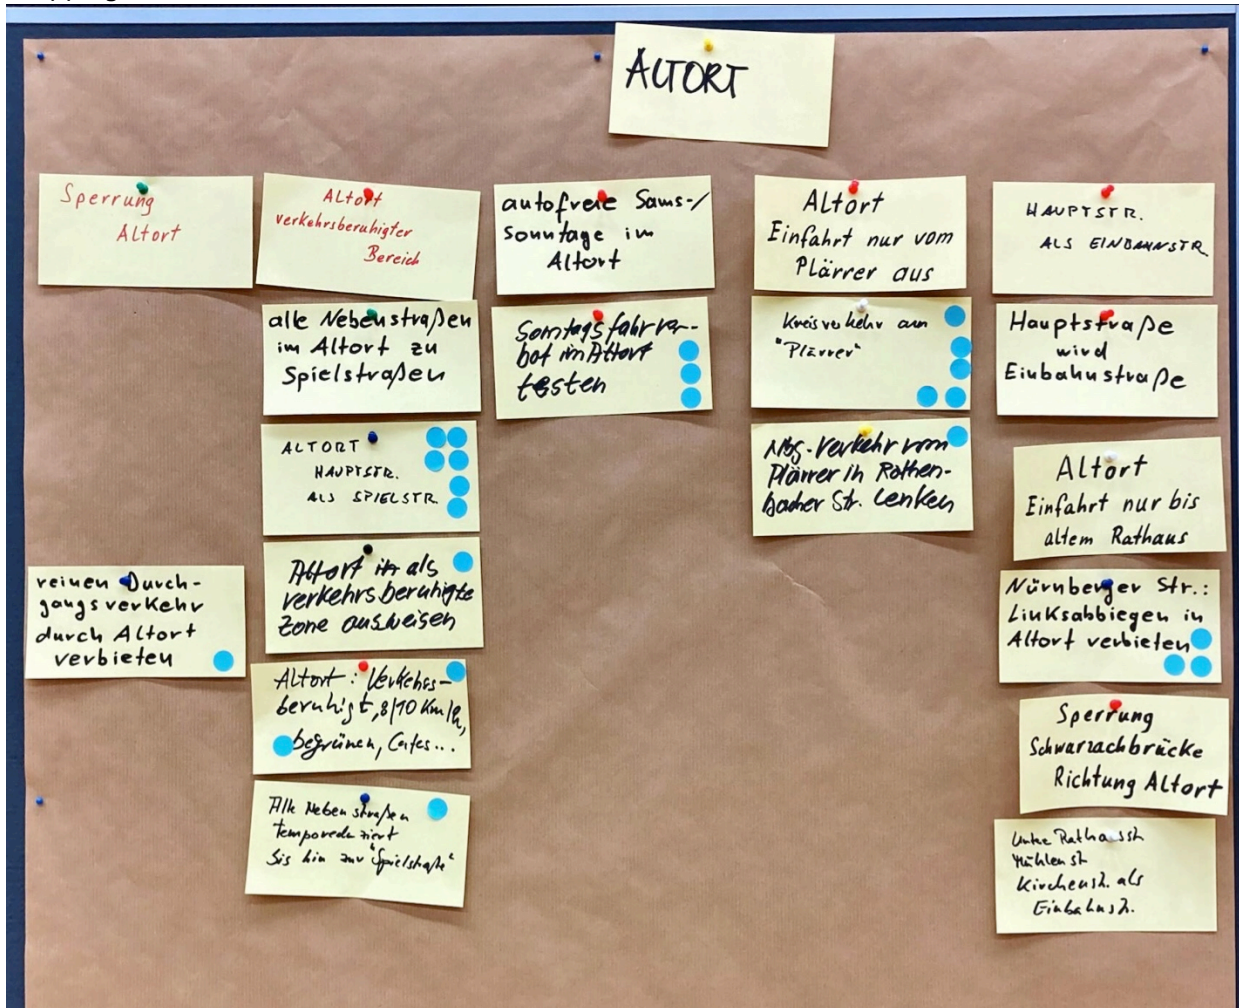 ALTORT
Sperrung
Altort
reinen Durch-
gangsverkehr
durch Altort
verbieten
Altort
verkehrsberuhigter
Bereich
alle Nebenstraßen
im Altort zu
Spielstraßen
ALTORT
HAUPTSTR.
ALS SPIELSTR.
Altort als
verkehrsberuhigte
Zone ausweisen
Altort: Verkehrs-
beruhigt, 8/10 Km/h,
begrünen, Cafes...
Alle Nebenstraßen
temporeduziert
bis hin zur "Spielstraße"
autofreie Sams-/
Sonntage im
Altort
Sonntagsfahrver-
bot im Altort
testen
Altort
Einfahrt nur vom
Plärrer aus
Kreisverkehr am
"Plärrer"
Nbg.-Verkehr vom
Plärrer in Röthen-
bacher Str. lenken
HAUPTSTR.
ALS EINBAHNSTR
Hauptstraße
wird
Einbahnstraße
Altort
Einfahrt nur bis
altem Rathaus
Nürnberger Str.:
Linksabbiegen in
Altort verbieten
Sperrung
Schwarzachbrücke
Richtung Altort
Untere Rathausstr
Mühlenstr
Kirchenstr. als
Einbahnstr.